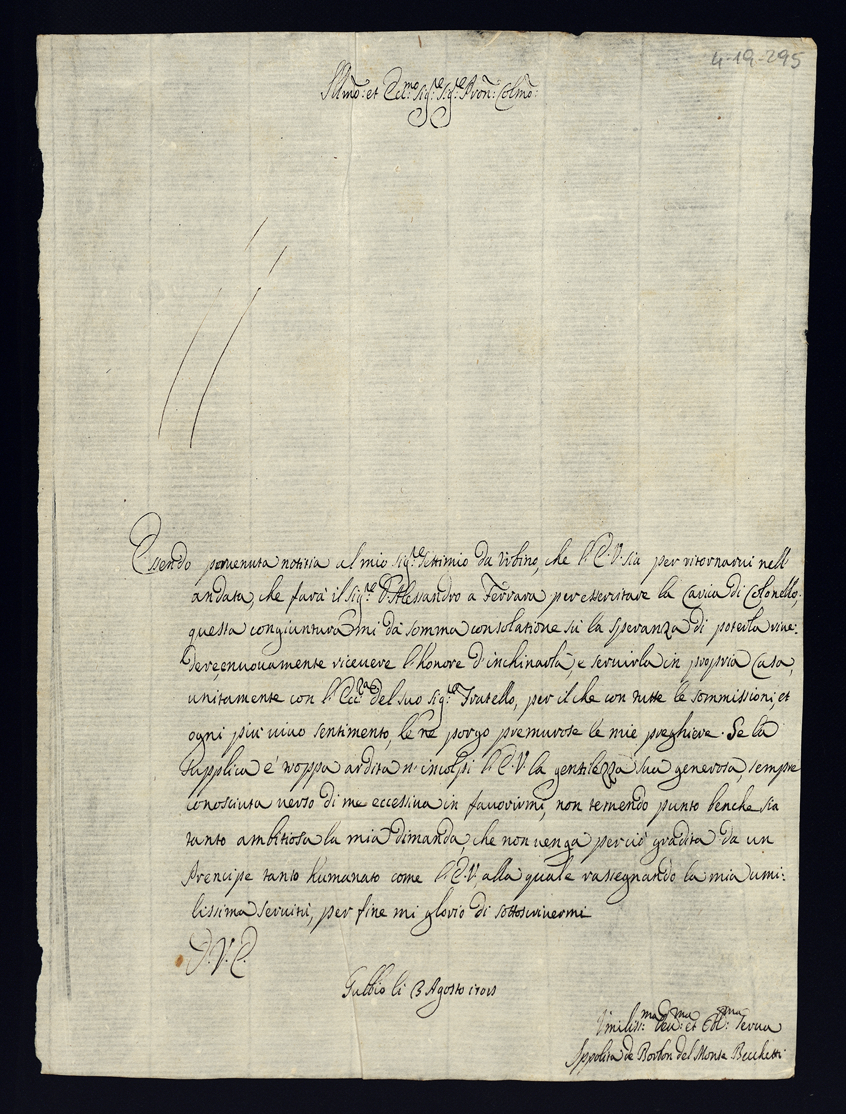 4-19-295
Ill.mo: et Ecc.mo Sig.re Sig.re Pron: Colmo:
Essendo pervenuta notitia al mio Sig.re Settimio da Urbino, che l'E.V. sia per ritornarvi nell'
andata, che farà il Sig.re D. Alessandro a Ferrara per esercitare la Carica di Colonello,
questa congiuntura mi dà somma consolatione sù la speranza di poterla rive:
dere, e nuovamente ricevere l'honore d'inchinarla, e servirla in propria Casa,
unitamente con l'Ecc.za del suo Sig.re Fratello, per il che con tutte le sommissioni, et
ogni più vivo sentimento, le ne porgo premurose le mie preghiere. Se la
supplica è troppa ardita n'incolpi l'E.V. la gentilezza sua generosa, sempre
conosciuta verso di me eccessiva in favorirmi, non temendo punto benche sia
tanto ambitiosa la mia dimanda, che non venga perciò gradita da un
Prencipe tanto humanato come l'E.V., alla quale rassegnando la mia umi:
lissima servitù, per fine mi glorio di sottoscrivermi
D.V.E.
Gubbio li 3 Agosto
Umiliss:ma Dev:ma et Obl:ma Serva
Ippolita de Borbon del Monte Beechetti